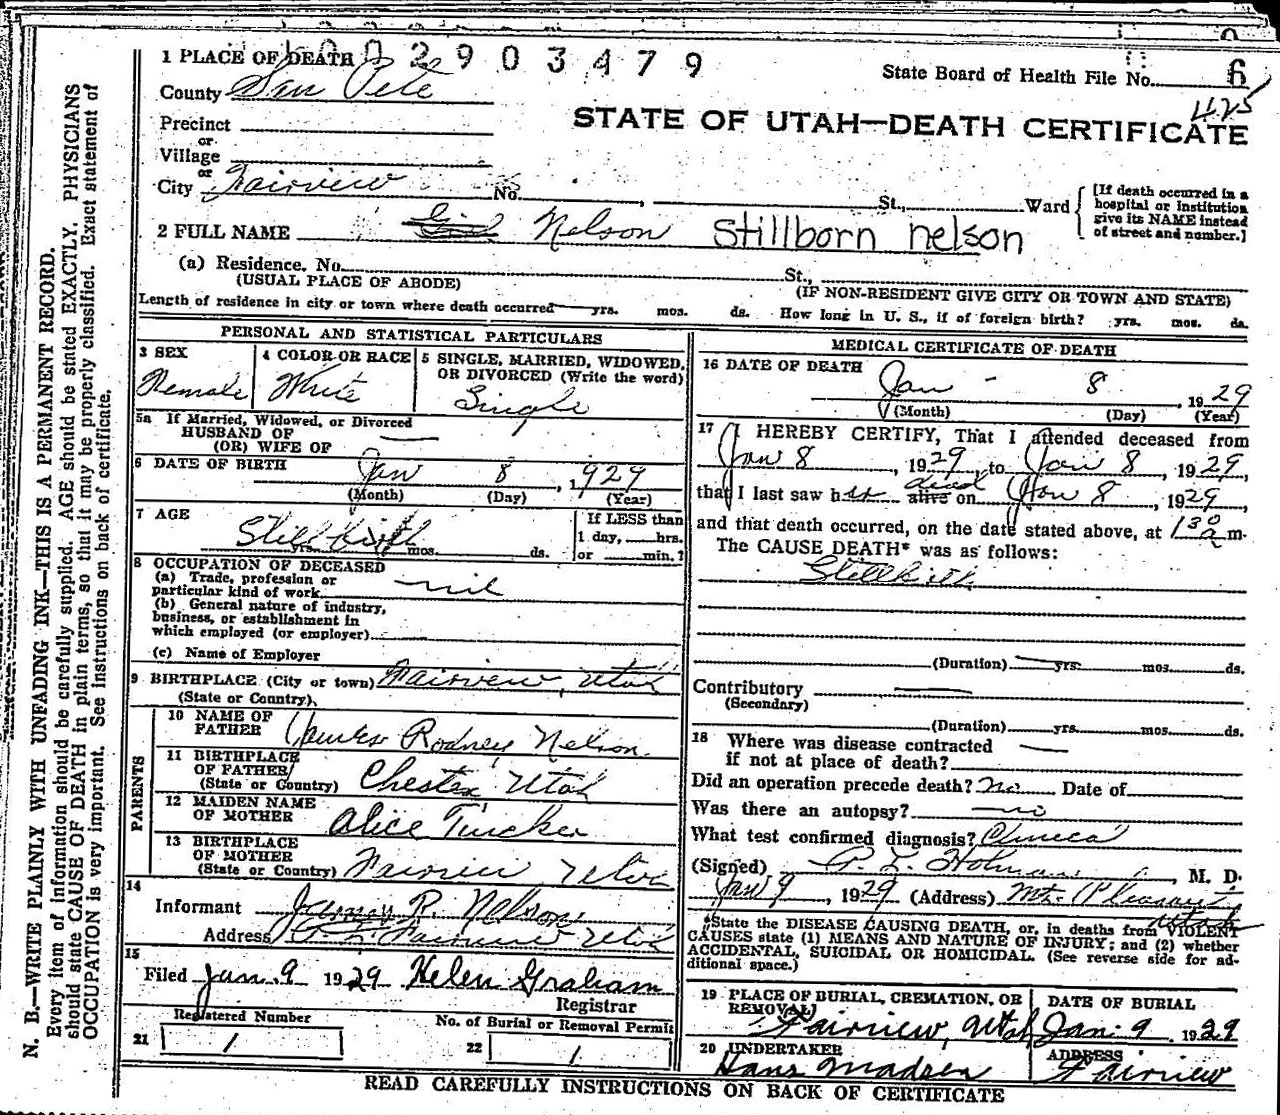 1 PLACE OF DEATH 002903479
State Board of Health File No. 6
County San Pete
425
STATE OF UTAH—DEATH CERTIFICATE
Precinct
or
Village
or
City Fairview No. , St., Ward
[If death occurred in a hospital or institution give its NAME instead of street and number.]
2 FULL NAME Girl Nelson Stillborn nelson
(a) Residence. No. St.,
(USUAL PLACE OF ABODE) (IF NON-RESIDENT GIVE CITY OR TOWN AND STATE)
Length of residence in city or town where death occurred yrs. mos. ds. How long in U. S., if of foreign birth? yrs. mos. ds.
PERSONAL AND STATISTICAL PARTICULARS
3 SEX
Female
4 COLOR OR RACE
White
5 SINGLE, MARRIED, WIDOWED, OR DIVORCED (Write the word)
Single
5a If Married, Widowed, or Divorced
HUSBAND OF
(OR) WIFE OF
6 DATE OF BIRTH Jan 8, 1929
(Month) (Day) (Year)
7 AGE
Stillbirth
yrs. mos. ds.
If LESS than
1 day, hrs.
or min.?
8 OCCUPATION OF DECEASED
(a) Trade, profession or
particular kind of work nil
(b) General nature of industry,
business, or establishment in
which employed (or employer)
(c) Name of Employer
9 BIRTHPLACE (City or town) Fairview, Utah
(State or Country)
PARENTS
10 NAME OF
FATHER James Rodney Nelson
11 BIRTHPLACE
OF FATHER
(State or Country) Chester Utah
12 MAIDEN NAME
OF MOTHER Alice Tucker
13 BIRTHPLACE
OF MOTHER
(State or Country) Fairview Utah
14
Informant James R. Nelson
Address Fairview Utah
15
Filed Jan. 9 1929 Helen Graham
Registrar
Registered Number
21 1
No. of Burial or Removal Permit
22 1
MEDICAL CERTIFICATE OF DEATH
16 DATE OF DEATH
Jan - 8, 1929
(Month) (Day) (Year)
17 I HEREBY CERTIFY, That I attended deceased from
Jan 8, 1929, to Jan 8, 1929,
that I last saw her alive dead on Jan 8, 1929,
and that death occurred, on the date stated above, at 130 a m.
The CAUSE DEATH* was as follows:
Stillbirth
(Duration) yrs. mos. ds.
Contributory
(Secondary)
(Duration) yrs. mos. ds.
18 Where was disease contracted
if not at place of death?
Did an operation precede death? No Date of
Was there an autopsy? no
What test confirmed diagnosis? Clinical
(Signed) P. L. Holman, M. D.
Jan 9, 1929 (Address) Mt. Pleasant
Utah
*State the DISEASE CAUSING DEATH, or, in deaths from VIOLENT
CAUSES state (1) MEANS AND NATURE OF INJURY; and (2) whether
ACCIDENTAL, SUICIDAL OR HOMICIDAL. (See reverse side for ad-
ditional space.)
19 PLACE OF BURIAL, CREMATION, OR
REMOVAL
Fairview, Utah
DATE OF BURIAL
Jan. 9 1929
20 UNDERTAKER
Hans Madsen
ADDRESS
Fairview
READ CAREFULLY INSTRUCTIONS ON BACK OF CERTIFICATE
N. B.—WRITE PLAINLY WITH UNFADING INK—THIS IS A PERMANENT RECORD.
Every item of information should be carefully supplied. AGE should be stated EXACTLY. PHYSICIANS
should state CAUSE OF DEATH in plain terms, so that it may be properly classified. Exact statement of
OCCUPATION is very important. See instructions on back of certificate.